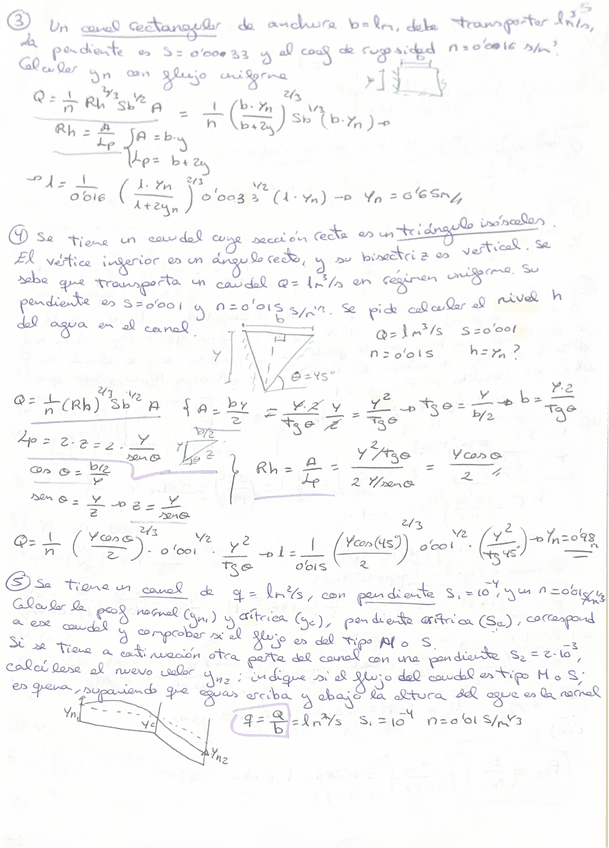 5
③ Un canal rectangular de anchura b=1m, debe transportar 1m³/s,
la pendiente es S=0'00033 y el coef de rugosidad n=0'0016 s/m^1/3.
Calcular yn con flujo uniforme
Q = 1/n Rh^2/3 Sb^1/2 A = 1/n (b·Yn / b+2y)^2/3 Sb^1/3 (b·Yn) →
Rh = A/Lp { A = b·y
Lp = b+2y
→ 1 = 1/0'016 (1·Yn / 1+2yn)^2/3 0'0033^1/2 (1·Yn) → Yn = 0'65m
④ Se tiene un caudal cuya sección recta es un triángulo isósceles.
El vértice inferior es un ángulo recto, y su bisectriz es vertical. Se
sabe que transporta un caudal Q=1m³/s en régimen uniforme. Su
pendiente es S=0'001 y n=0'015 s/m^1/3. Se pide calcular el nivel h
del agua en el canal.
b
Y
θ=45°
Q=1m³/s S=0'001
n=0'015 h=Yn?
Q = 1/n (Rh)^2/3 Sb^1/2 A { A = by/2 = y·2/tgθ y/2 = y²/tgθ → tgθ = y/b/2 → b = y·2/tgθ
Lp = 2·z = 2· y/senθ
b/2
Y
θ z
cos θ = b/2/y
} Rh = A/Lp = y²/tgθ / 2 y/senθ = y cosθ/2
sen θ = y/z → z = y/senθ
Q = 1/n (y cosθ/2)^2/3 · 0'001^1/2 · y²/tgθ → 1 = 1/0'015 (y cos(45°)/2)^2/3 0'001^1/2 · (y²/tg45°) → Yn = 0'98m
⑤ Se tiene un canal de q=1m²/s, con pendiente S₁=10⁻⁴, y un n=0'01 s/m^1/3
Calcular la prof normal (yn1) y crítica (yc), pendiente crítica (Sc), correspond
a ese caudal y comprobar si el flujo es del tipo M o S.
Si se tiene a continuación otra parte del canal con una pendiente S₂=2·10⁻³,
calcúlese el nuevo valor yn2; indique si el flujo del caudal es tipo M o S;
suponiendo que aguas arriba y abajo la altura del agua es la normal
Yn
Yc
Yn2
q = Q/b = 1m²/s S₁=10⁻⁴ n=0'01 s/m^1/3